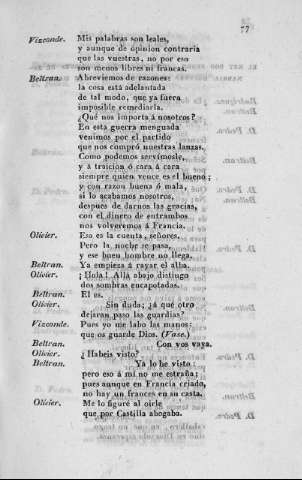 77
Vizconde. Mis palabras son leales,
y aunque de opinion contraria
que las vuestras, no por eso
son menos libres ni francas.
Beltran. Abreviemos de razones:
la cosa está adelantada
de tal modo, que ya fuera
imposible remediarla.
¿Qué nos importa á nosotros?
En esta guerra menguada
venimos por el partido
que nos compró nuestras lanzas.
Como podemos servímosle,
y á traicion ó cara á cara
siempre quien vence es el bueno;
y con razon buena ó mala,
si lo acabamos nosotros,
despues de darnos las gracias,
con el dinero de entrambos
nos volveremos á Francia.
Olivier. Eso es la cuenta, señores.
Pero la noche se pasa,
y ese buen hombre no llega.
Beltran. Ya empieza á rayar el alba.
Olivier. ¡Hola! Allá abajo distingo
dos sombras encapotadas.
Beltran. El es.
Olivier. Sin duda; ¿á qué otro
dejaran paso las guardias?
Vizconde. Pues yo me labo las manos:
que os guarde Dios. (Vase.)
Beltran. Con vos vaya.
Olivier. ¿Habeis visto?
Beltran. Ya lo he visto:
pero eso á mí no me estraña:
pues aunque en Francia criado,
no hay un frances en su casta.
Olivier. Me lo figuré al oirle
que por Castilla abogaba.